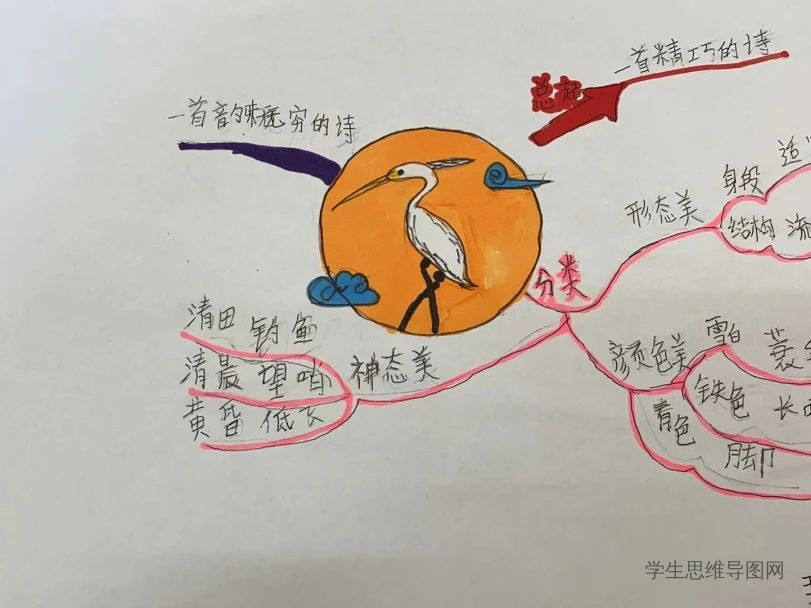 总起
一首精巧的诗
一首韵味无穷的诗
分类
形态美
身段 适
结构 流
颜色美
雪白 蓑
铁色 长
青色 脚
神态美
清田 钓鱼
清晨 望哨
黄昏 低飞
学生思维导图网